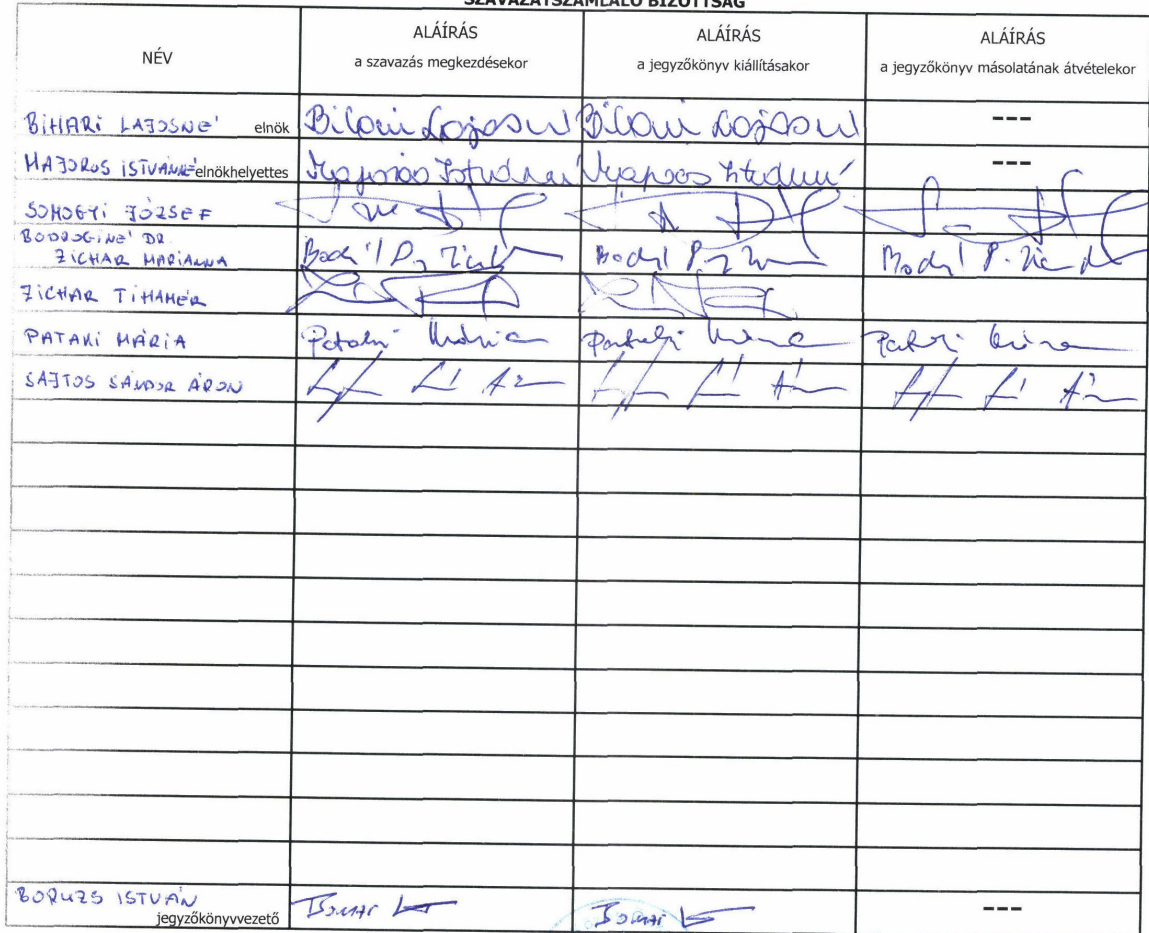 SZAVAZATSZÁMLÁLÓ BIZOTTSÁG
NÉV
ALÁÍRÁS
a szavazás megkezdésekor
ALÁÍRÁS
a jegyzőkönyv kiállításakor
ALÁÍRÁS
a jegyzőkönyv másolatának átvételekor
BIHARI LAJOSNÉ elnök Bihari Lajosné Bihari Lajosné ---
MAJOROS ISTVÁNNÉ elnökhelyettes Majoros Istvánné Majoros Istvánné ---
SOMOGYI JÓZSEF
BODROGINÉ DR.
ZICHAR MARIANNA
ZICHAR TIHAMÉR
PATAKI MÁRIA Pataki Mária Pataki Mária Pataki Mária
SAJTOS SÁNDOR ÁRON
BORUZS ISTVÁN
jegyzőkönyvvezető ---